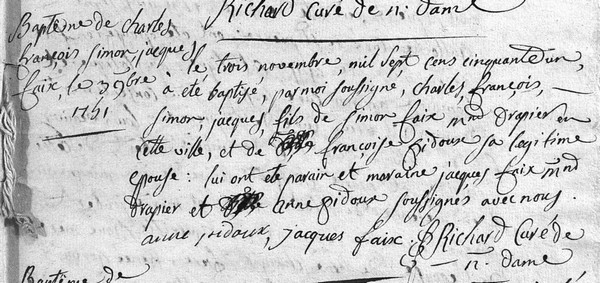 Richard Curé de n. dame
Baptême de charles
françois, simon, jacques
faix, le 3 9bre
1751
le trois novembre, mil sept cens cinquante un,
à été baptisé, par moi soussigné, charles, françois,
simon, jacques, fils de simon faix mnd drapier en
cette ville, et de françoise pidoux sa legitime
epouse : lui ont été parain et maraine jacques faix mnd
drapier et anne pidoux soussignés avec nous.
anne pidoux, jacques faix. Richard Curé de
n. dame
Baptême de